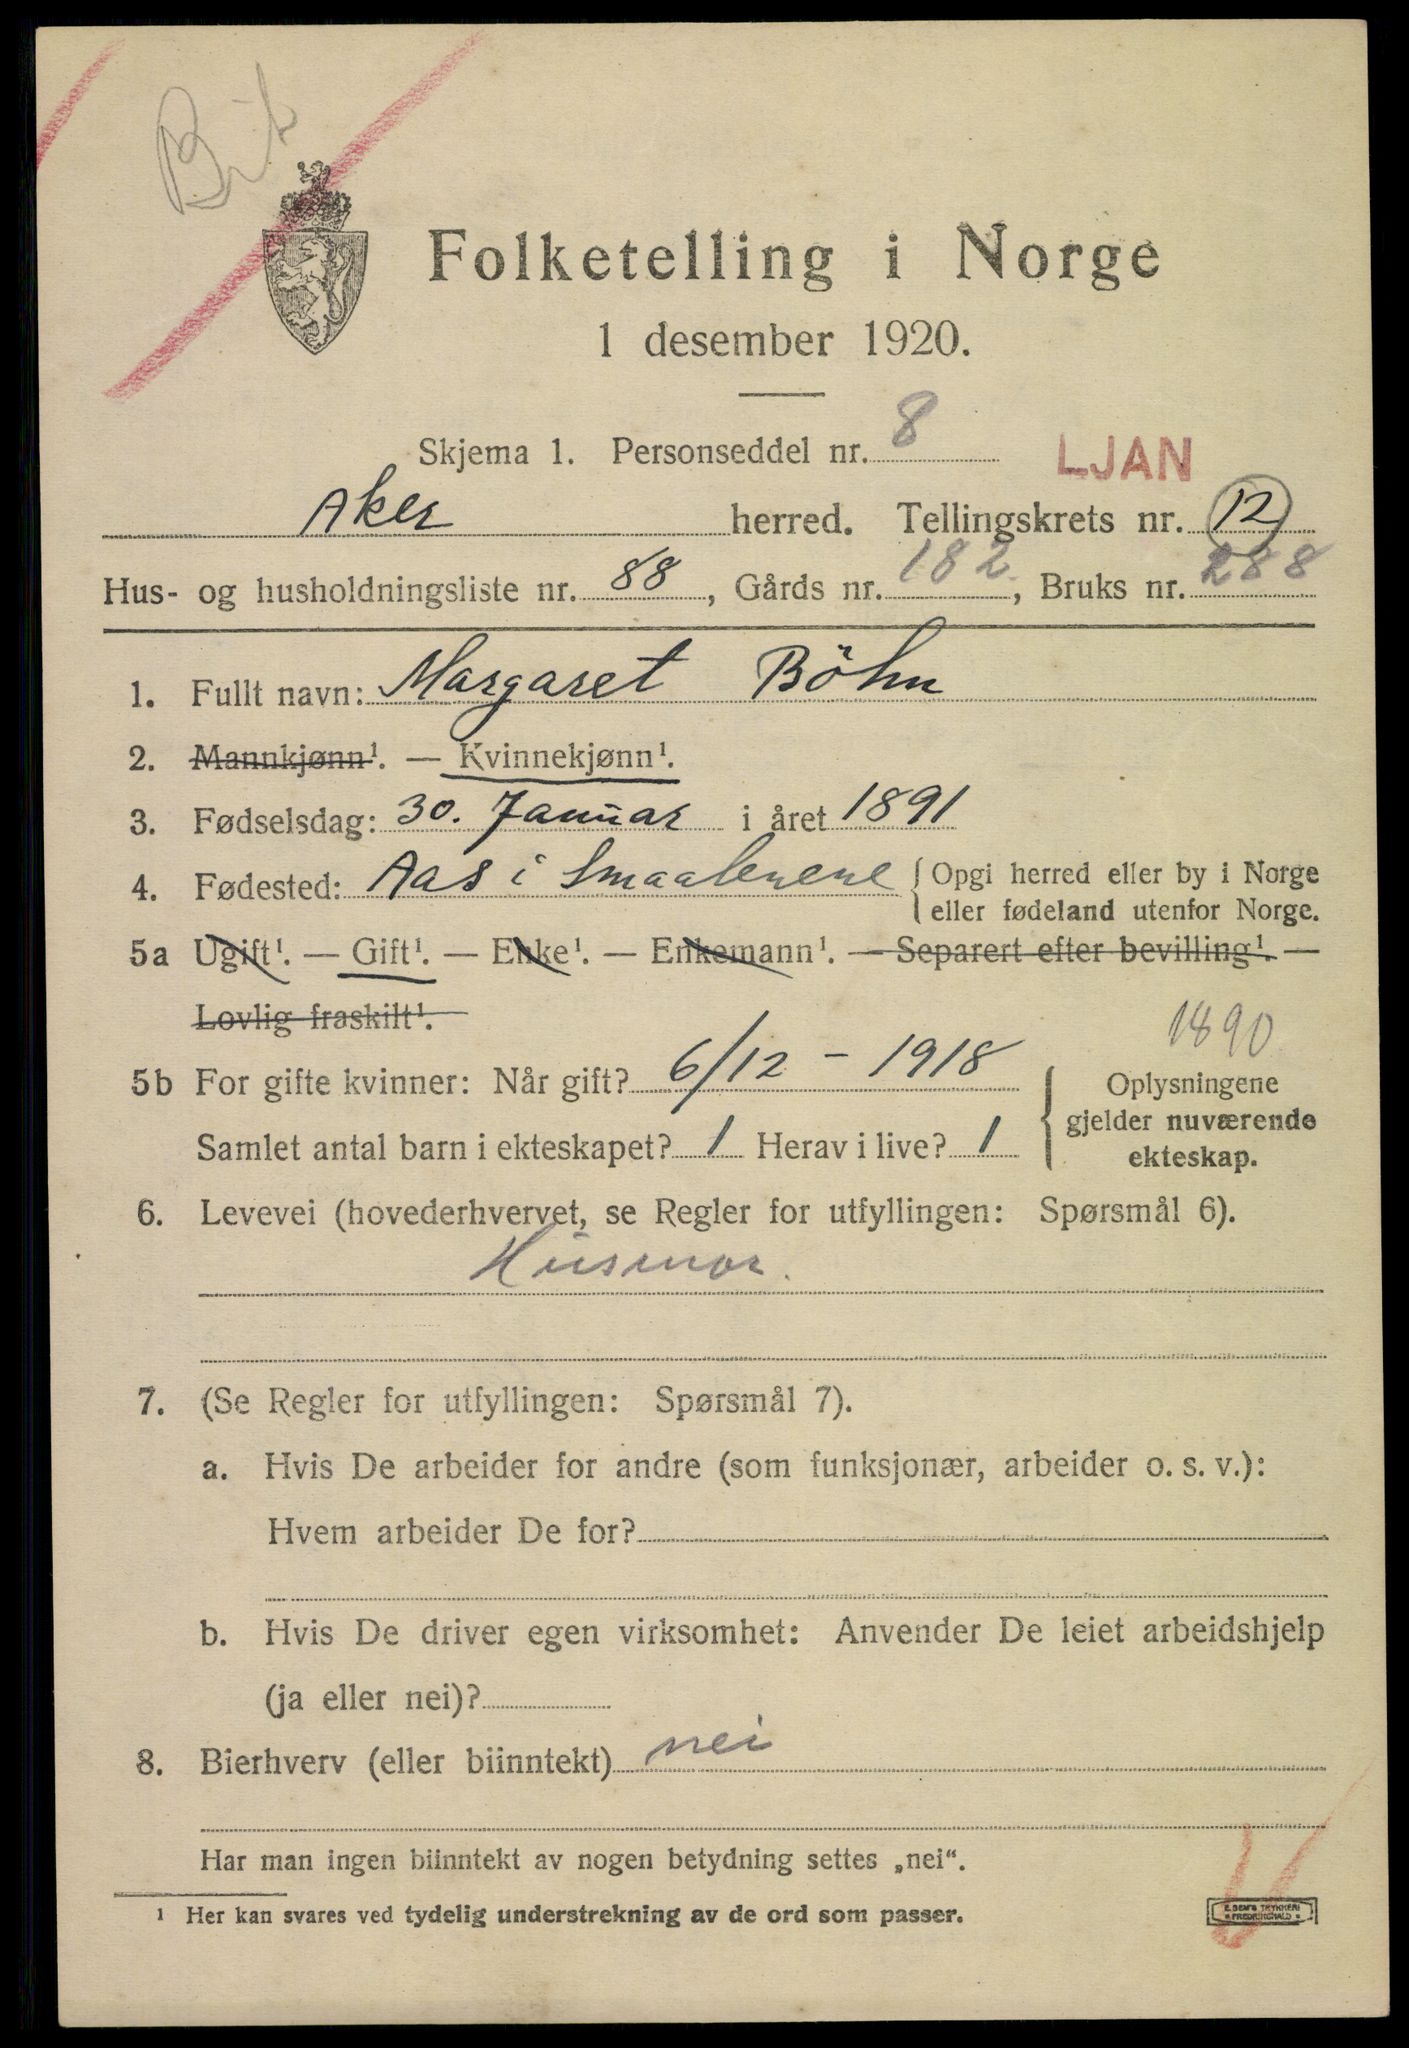 Folketelling i Norge
1 desember 1920.
Skjema 1. Personseddel nr. 8
LJAN
Aker herred. Tellingskrets nr. 12
Hus- og husholdningsliste nr. 88, Gårds nr. 182, Bruks nr. 288
1. Fullt navn: Margaret Böhn
2. Mannkjønn¹. — Kvinnekjønn¹.
3. Fødselsdag: 30. Januar i året 1891
4. Fødested: Aas i Smaalenene { Opgi herred eller by i Norge
eller fødeland utenfor Norge.
5a Ugift¹. — Gift¹. — Enke¹. — Enkemann¹. — Separert efter bevilling¹. —
Lovlig fraskilt¹.
1890
5b For gifte kvinner: Når gift? 6/12 - 1918
Samlet antal barn i ekteskapet? 1 Herav i live? 1
Oplysningene
gjelder nuværende
ekteskap.
6. Levevei (hovederhvervet, se Regler for utfyllingen: Spørsmål 6).
Husmor.
7. (Se Regler for utfyllingen: Spørsmål 7).
a. Hvis De arbeider for andre (som funksjonær, arbeider o. s. v.):
Hvem arbeider De for?
b. Hvis De driver egen virksomhet: Anvender De leiet arbeidshjelp
(ja eller nei)?
8. Bierhverv (eller biinntekt) nei
Har man ingen biinntekt av nogen betydning settes „nei“.
¹ Her kan svares ved tydelig understrekning av de ord som passer.
E. SEM'S TRYKKERI
FREDRIKSHALD